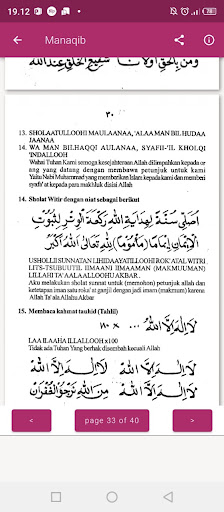 19.12
Manaqib
٣٠
13. SHOLAATULLOOHI MAULAANAA, 'ALAA MAN BIL HUDAA
JAANAA
14. WA MAN BILHAQQI AULANAA, SYAFII-'IL KHOLQI
'INDALLOOH
Wahai Tuhan Kami semoga kesejahteraan Allah dilimpahkan kepada or
ang yang datang dengan membawa petunjuk untuk kami
Yaitu Nabi Muhammad yang memberikan Islam kepada kami dan memberi
syafa'at kepada para makhluk disisi Allah
14. Sholat Witir dengan niat sebagai berikut
أُصَلِّي سُنَّةً لِهِدَايَةِ اللهِ رَكْعَةَ الْوِتْرِ لِثُبُوْتِ
الْإِيْمَانِ إِمَامًا (مَأْمُوْمًا) لِلّٰهِ تَعَالَى اللهُ أَكْبَرُ
USHOLLI SUNNATAN LIHIDAAYATILLOOHI ROK'ATAL WITRI
LITS-TSUBUUTIL IIMAANI IIMAAMAN (MAKMUUMAN)
LILLAHI TA'AALA ALLOOHU AKBAR.
Aku menyengaja sholat sunnat untuk (memohon) petunjuk allah dan
ketetapan iman satu roka'at ganjil dengan jadi imam (makmum) karena
Allah Ta'ala Allahu Akbar
15. Membaca kalmat tauhid (Tahlil)
لَا إِلٰهَ إِلَّا اللهُ ... ١٠٠ ×
LAA ILAAHA ILLALLOOH x100
Tidak ada Tuhan Yang berhak disembah kecuali Allah
لَا إِلٰهَ إِلَّا اللهُ لَا إِلٰهَ إِلَّا اللهُ
لَا إِلٰهَ إِلَّا اللهُ مِنَ اللهِ نَرْجُو الْغُفْرَانَ
<
page 33 of 40
>